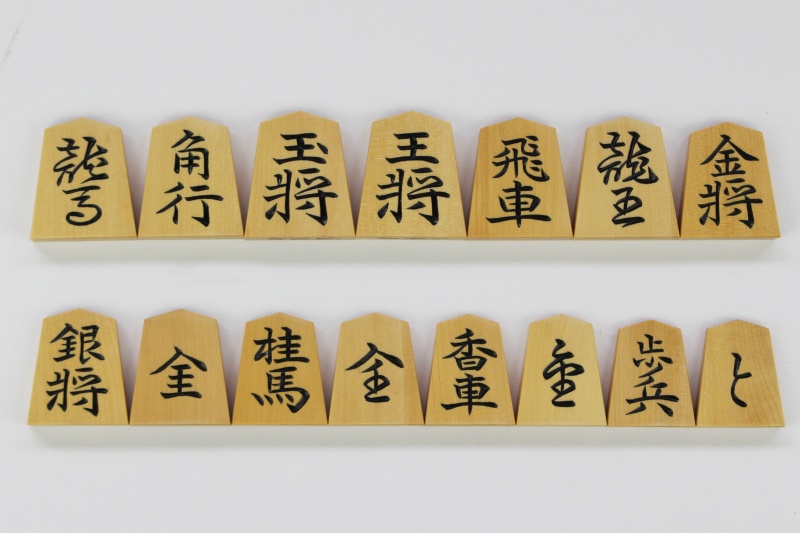 龍馬 角行 玉将 王将 飛車 龍王 金将
銀将 全 桂馬 圭 香車 杏 歩兵 と